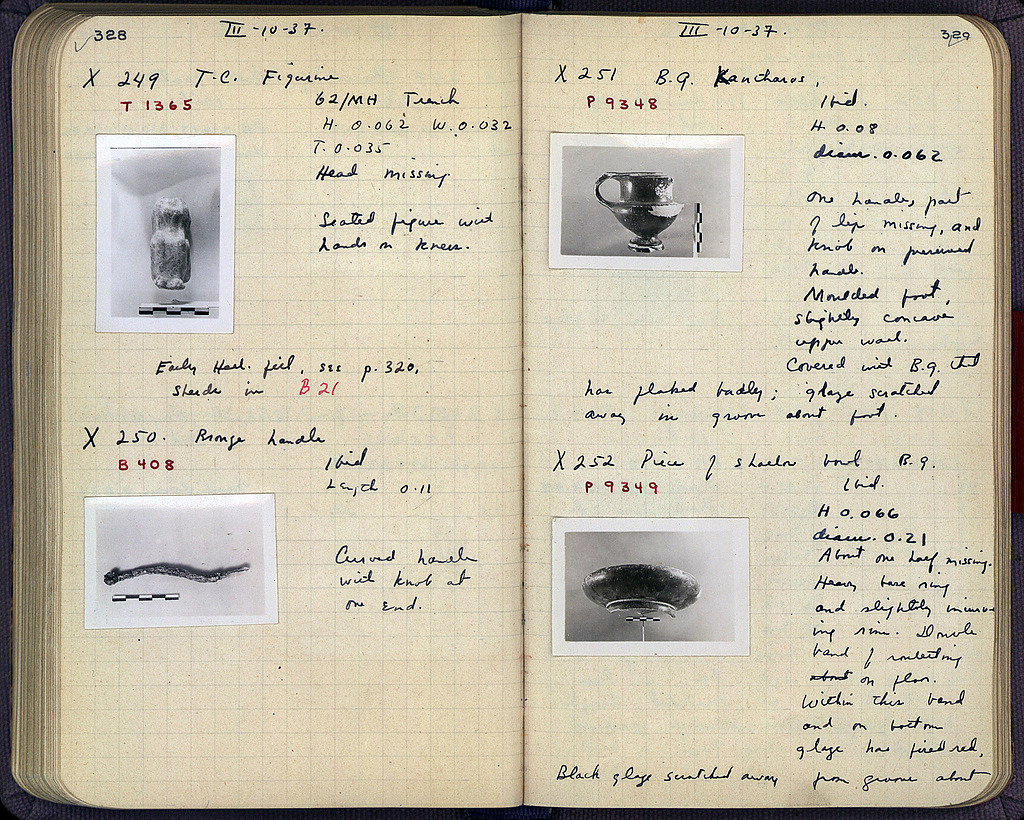 328
III-10-37.
X 249 T.C. Figurine
T 1365
62/MH Trench
H. 0.062 W. 0.032
T. 0.035
Head missing.
Seated figure with
hands on knees.
Early Hell. fill, see p. 320,
sherds in B 21
X 250. Bronze handle
B 408
Ibid
Length 0.11
Curved handle
with knob at
one end.
329
III-10-37.
X 251 B.G. Kancharos,
P 9348
Ibid.
H 0.08
diam. 0.062
One handle, part
of lip missing, and
knob on preserved
handle.
Moulded foot,
slightly concave
upper wall.
Covered with B.G. that
has flaked badly; glaze scratched
away in groove about foot.
X 252 Piece of shallow bowl B.G.
P 9349
Ibid.
H 0.066
diam. 0.21
About one half missing.
Heavy base ring
and slightly incurv-
ing rim. Double
band of rouletting
about on floor.
Within this band
and on bottom
glaze has fired red.
Black glaze scratched away from groove about